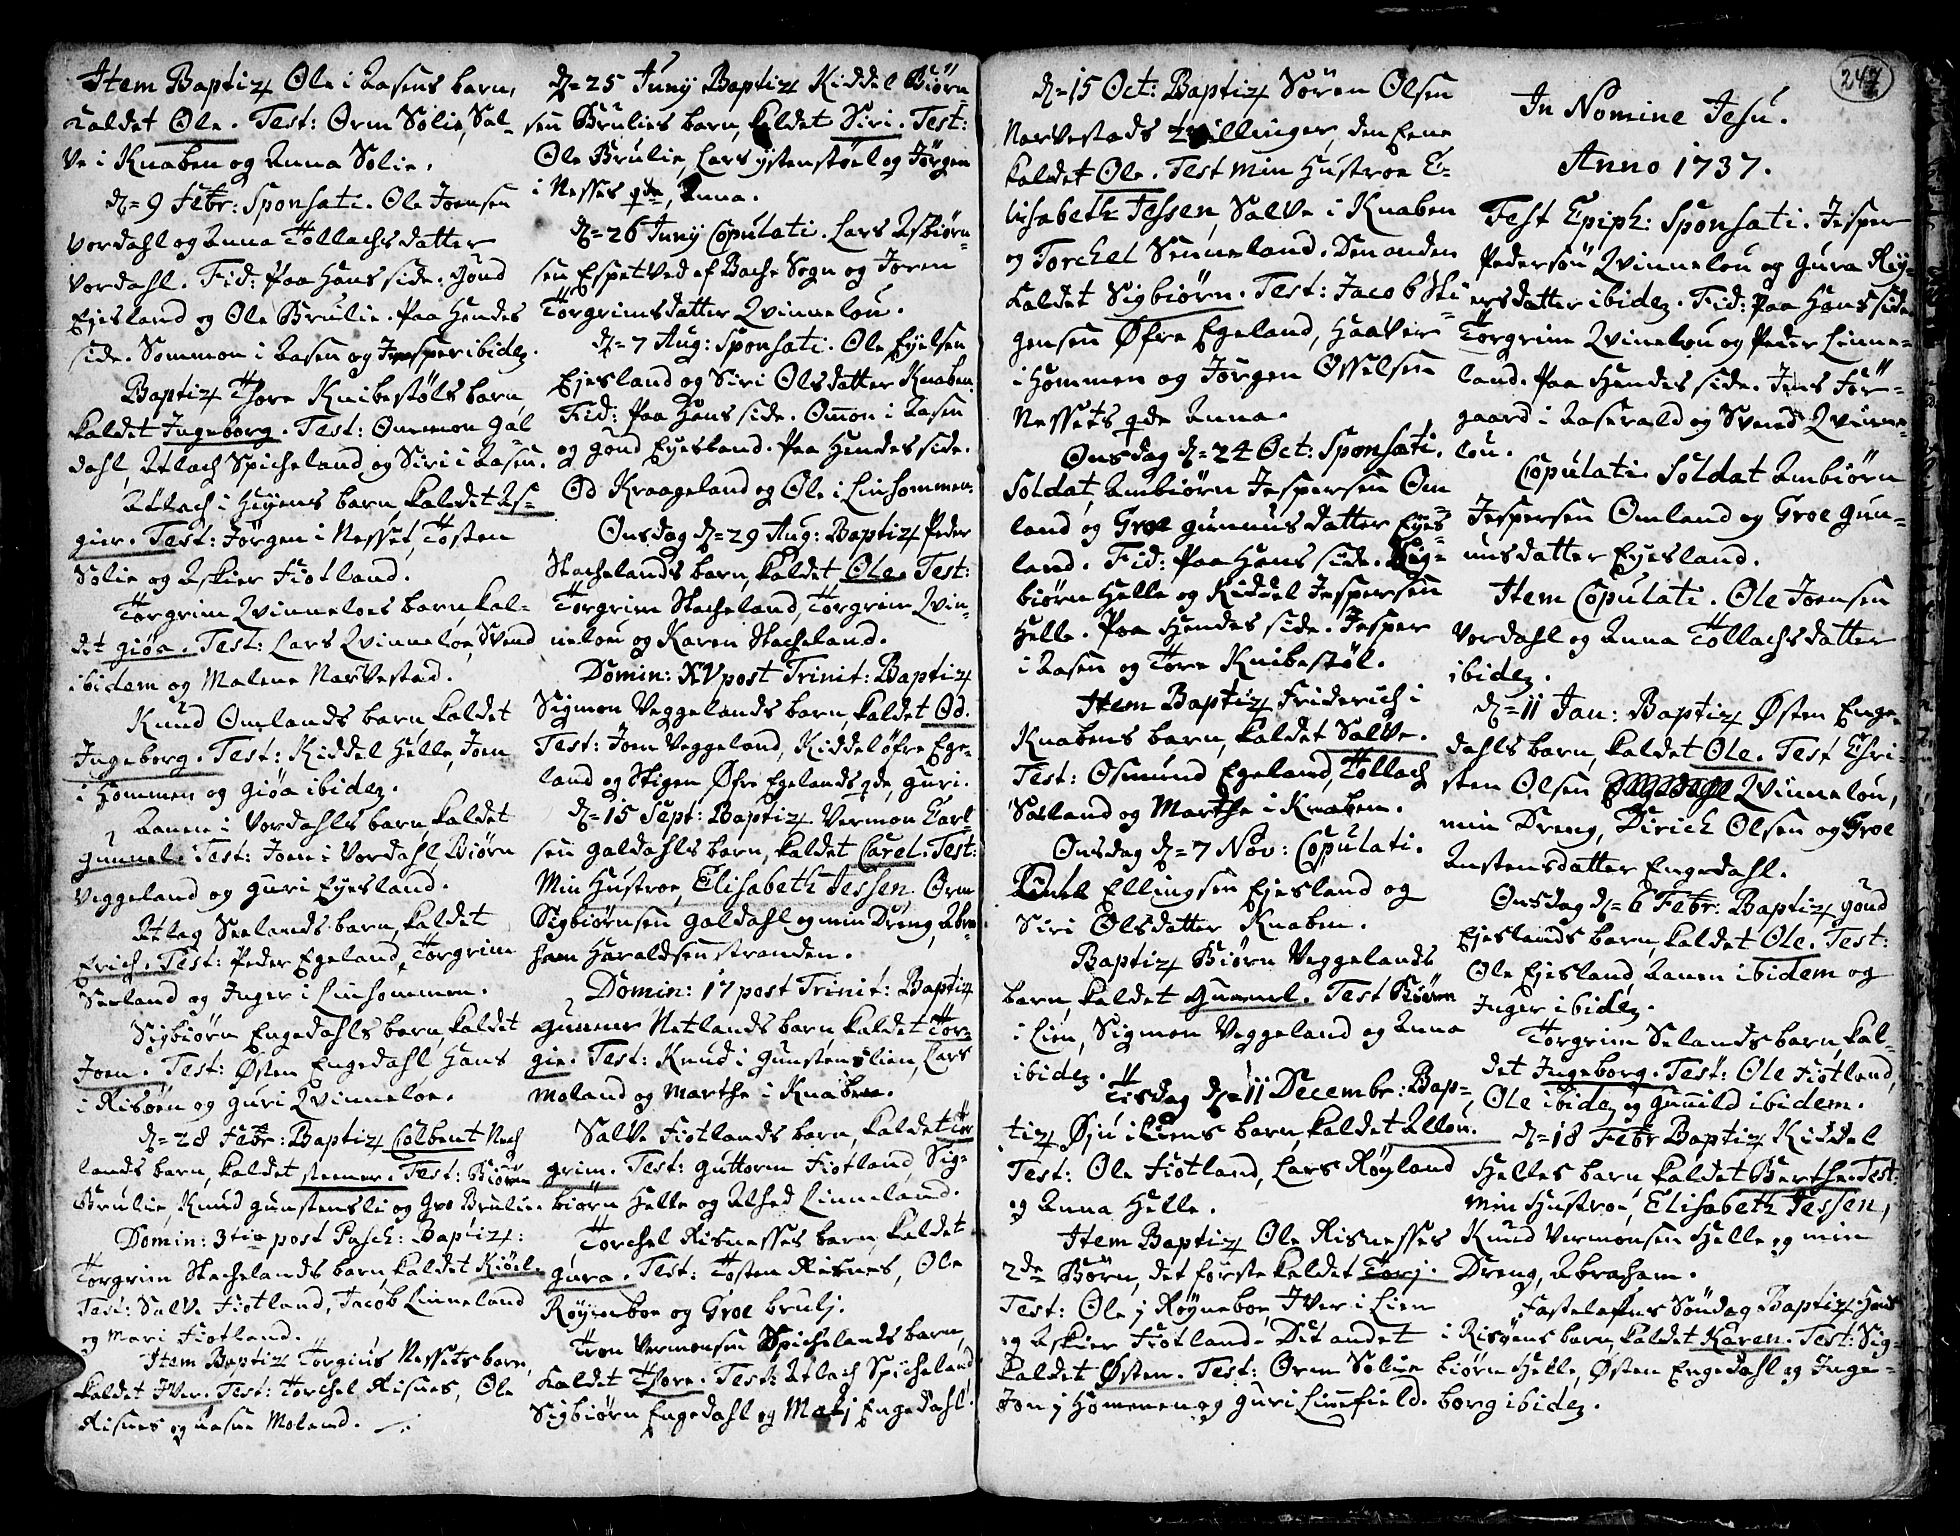 Item Baptiz Ole i Aasens barn,
kaldet Ole. Test: Orm Solie, Sal-
ve i Knaben og Anna Solie.
d= 9 Febr: Sponsati. Ole Joensen
Vordahl og Anna Tollachsdatter
Vordahl. Fid: Paa Hans side: Gond
Ejesland og Ole Brulie. Paa Hendes
side. Sommon i Aasen og Jesper ibidez.
Baptiz Thore Knibestøls barn
kaldet Ingeborg. Test: Ommon Gal
dahl, Atlach Spicheland, og Siri i Aasen.
Atlach i Heyens barn, kaldet As-
gier. Test: Jørgen i Nesset, Tosten
Solie og Askier Fiotland.
Torgrim Qvinneloes barn, kal-
det Giøa. Test: Lars Qvinneloe, Svend
ibidem og Malene Narvestad.
Knud Omlands barn kaldet
Ingeborg. Test: Kiddel Helle, Joen
i Hommen og Giøa ibidez.
Aanen i Vordahls barn, kaldet
Gunnel. Test: Joen i Vordahl, Biørn
Veggeland og Guri Eyesland.
Atlag Seelands barn, kaldet
Erich. Test: Peder Egeland, Torgrim
Seeland og Inger i Linhommen.
Sigbiørn Engedahls barn, kaldet
Joen. Test: Østen Engedahl, Hans
i Risøen og Guri Qvinneloe.
d= 28 Febr: Baptiz Colbent Nech
lands barn, kaldet Steener. Test: Biørn
Brulie, Knud Gunstensli og Gro Brulie.
Domin: 3tia post Pasch: Baptiz:
Torgrim Stachelands barn, kaldet Kiøel.
Test: Salve Fiotland, Jacob Linneland
og Mari Fiotland.
Item Baptiz Torgius Nessets barn,
kaldet Iver. Test: Torchel Risnes, Ole
Risnes og Aasne Moland.
d= 25 Juny Baptiz Kiddel Biørn
sen Brulies barn, kaldet Siri. Test:
Ole Brulie, Lars ystenstøel og Jørgen
i Nesses qde, Anna.
d= 26 Juny Copulati. Lars Asbiørn-
sen Espetved af Bache Sogn og Joren
Torgrimsdatter Qvinnelou.
d= 7 Aug: Sponsati. Ole Eyelsen
Ejesland og Siri Olsdatter Knaben.
Fid: Paa Hans side. Ommon i Aasen
og Gond Eyesland. Paa Hendes side.
Od Kraageland og Ole i Linhommen.
Onsdag d= 29 Aug: Baptiz Peder
Stachelands barn, kaldet Ole. Test:
Torgrim Stacheland, Torgrim Qvin-
nelou og Karen Stacheland.
Domin: XV post Trinit: Baptiz
Sigmon Veggelands barn, kaldet Od.
Test: Joen Veggeland, Kiddel øfre Ege-
land og Stigen Øfre Egelands qde, Guri.
d= 15 Sept: Baptiz Vermon Carl-
sen Galdahls barn, kaldet Carel. Test:
Min Hustroe, Elisabeth Jessen, Orm
Sigbiørnsen Galdahl og min Dreng, Abra-
ham Haraldsen Stranden.
Domin: 17 post Trinit: Baptiz
Gunner Netlands barn, kaldet Tor-
gie. Test: Knud i Gunstenslien, Lars
Moland og Marthe i Knaben.
Salve Fiotlands barn, kaldet Tor
grim. Test: Guttorm Fiotland, Sig-
biørn Helle og Alhed Linneland.
Torchel Risnesses barn, kaldet
Gura. Test: Tosten Risnes, Ole
Røyneboe og Groe Brulj.
Tron Vermonsen Spichelands barn,
kaldet Thore. Test: Atlach Spicheland,
Sigbiørn Engedahl og Marj Engedahl.
d= 15 Oct: Baptiz Søren Olsen
Narvestads tvillinger, den Eene
kaldet Ole. Test min Hustroe E-
lisabeth Jessen, Salve i Knaben
og Torchel Senneland. Den anden
kaldet Sigbiørn. Test: Jacob Sti
gensen Øfre Egeland, Haaver
i Hommen og Jørgen Osselsen
Nessets qde Anna.
Onsdag d= 24 Oct: Sponsati.
Soldat, Ambiørn Jespersen Om
land og Groe Gunnusdatter Eyes
land. Fid: Paa Hans side. Sig-
biørn Helle og Kiddel Jespersen
Helle. Paa Hendes side. Jesper
i Aasen og Tore Knibestøl.
Item Baptiz Friderich i
Knabens barn, kaldet Salve.
Test: Osmund Egeland, Tollach
Sætland og Marthe i Knaben.
Onsdag d= 7 Nov: Copulati.
Ellingsen Ejesland og
Siri Olsdatter Knaben.
Baptiz Biørn Veggelands
barn, kaldet Gunnel. Test Biørn
i Lien, Sigmon Veggeland og Anna
ibidez.
Tisdag d= 11 Decembr: Bap-
tiz Øju i Liens barn, kaldet Allou.
Test: Ole Fiotland, Lars Røyland
og Anna Helle.
Item Baptiz Ole Risnesses
2de Børn, det første kaldet Torj.
Test: Ole j Røyneboe, Iver i Lien
og Askier Fiotland. Det andet
kaldet Østen. Test: Orm Solie
Jon j Hommen og Guri Linefield.
247
In Nomine Jesu.
Anno 1737.
Fest Epiph: Sponsati. Jesper
Pedersøn Qvinnelou og Gura Rey-
ersdatter ibidez. Fid: Paa Hans side
Torgrim Qvinelou og Peder Linne-
land. Paa Hendes side. Jens Før-
gaard i Aaserald og Svend Qvinne-
lou.
Copulati Soldat Ambiørn
Jespersen Omland og Groe Gun-
nusdatter Eyesland.
Item Copulati. Ole Joensen
Vordahl og Anna Tollachsdatter
ibidez.
d= 11 Jan: Baptiz Østen Enge-
dahls barn, kaldet Ole. Test Chri-
sten Olsen Qvinnelou,
min Dreng, Dirich Olsen og Groe
Anstensdatter Engedahl.
Onsdag d= 6 Febr: Baptiz Gond
Ejeslands barn, kaldet Ole. Test:
Ole Ejesland, Aanen ibidem og
Inger ibidez.
Torgrim Selands barn, kal-
det Ingeborg. Test: Ole Fiotland,
Ole ibidez og Gunild ibidem.
d= 18 Febr Baptiz Kiddel
Helles barn, kaldet Berthe. Test:
Min Hustroe, Elisabeth Jessen,
Knud Vermonsen Helle og min
Dreng, Abraham.
Fastelafns Søndag Baptiz Hans
i Risøens barn, kaldet Karen. Test: Sig-
biørn Helle, Østen Engedahl og Inge-
borg ibidez.